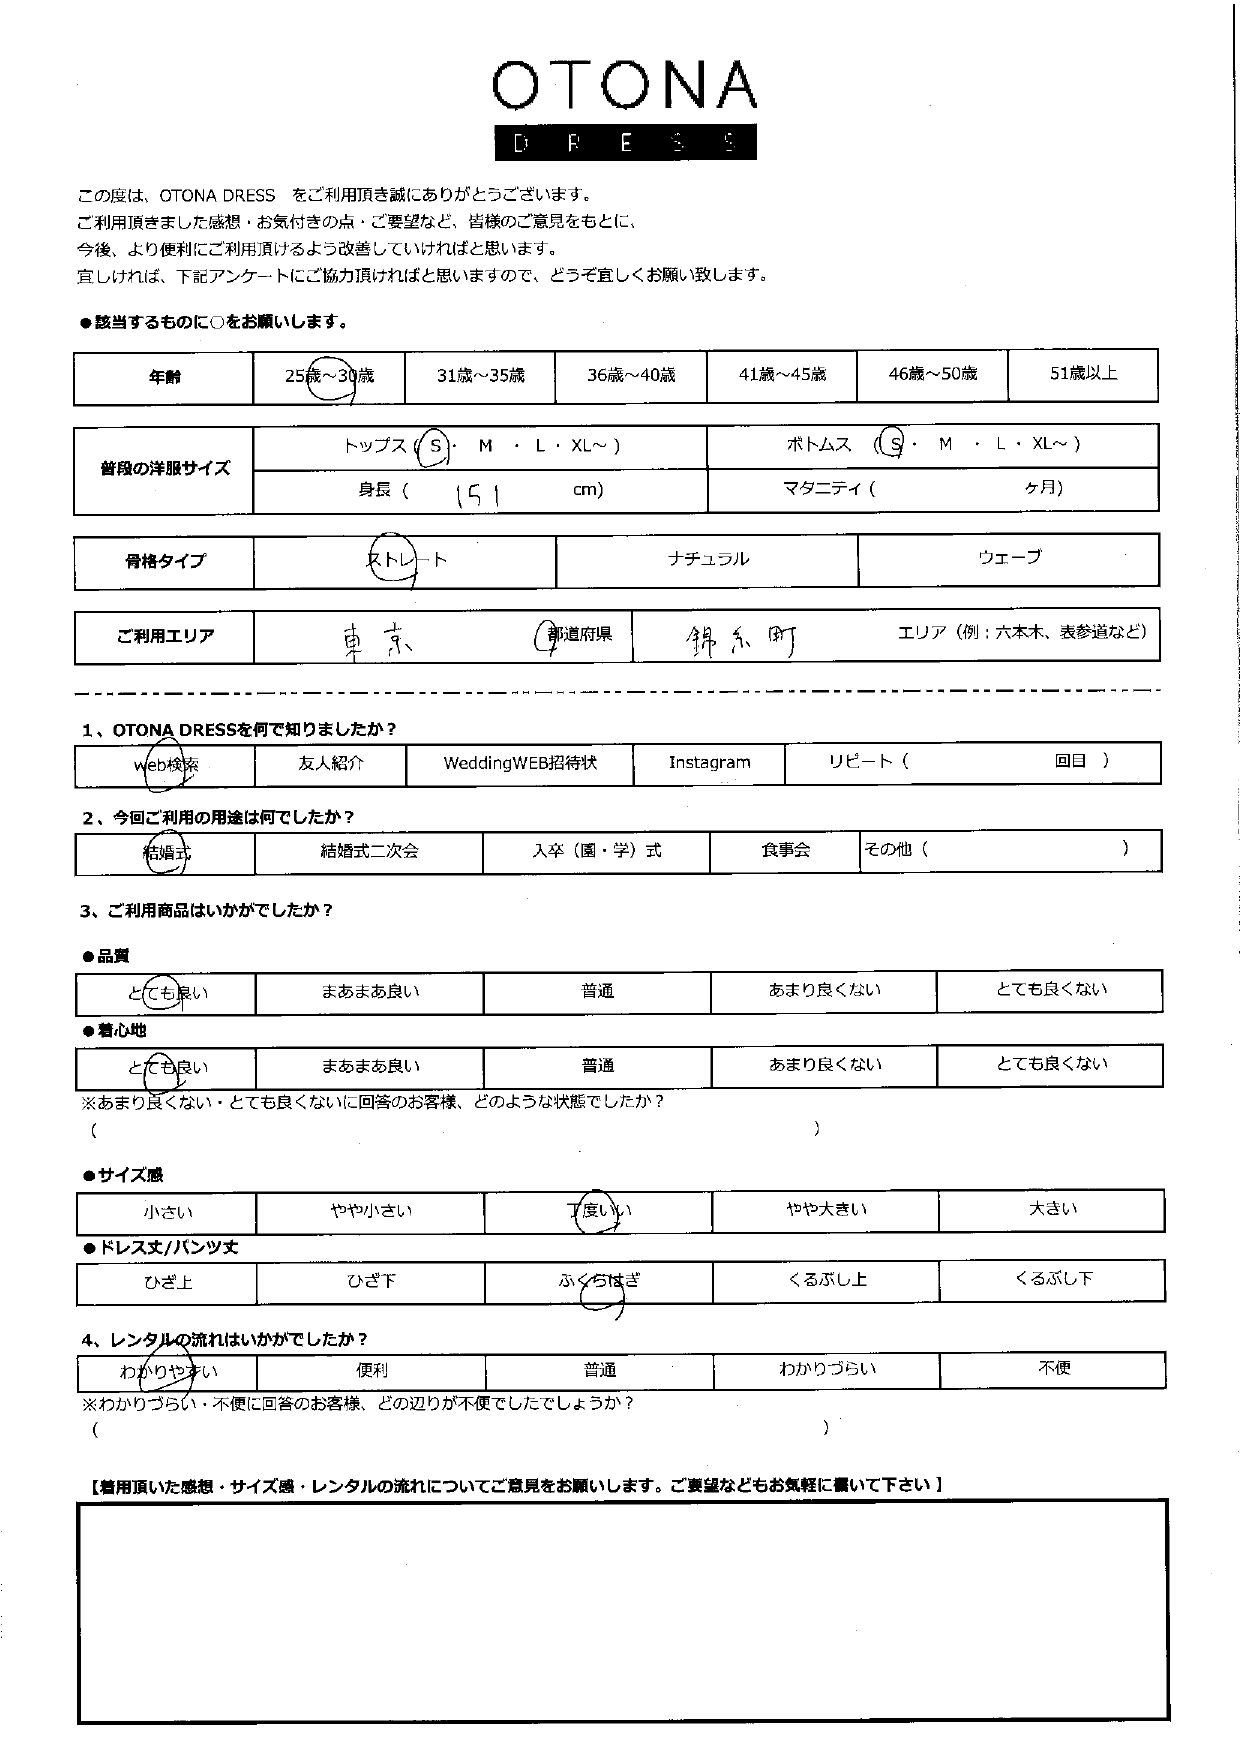 OTONA
DRESS
この度は、OTONA DRESS　をご利用頂き誠にありがとうございます。
ご利用頂きました感想・お気付きの点・ご要望など、皆様のご意見をもとに、
今後、より便利にご利用頂けるよう改善していければと思います。
宜しければ、下記アンケートにご協力頂ければと思いますので、どうぞ宜しくお願い致します。
●該当するものに○をお願いします。
年齢 25歳～30歳 31歳～35歳 36歳～40歳 41歳～45歳 46歳～50歳 51歳以上
普段の洋服サイズ トップス ( S ・ M ・ L ・ XL～ ) ボトムス ( S ・ M ・ L ・ XL～ )
身長 ( 151 cm) マタニティ ( ケ月)
骨格タイプ ストレート ナチュラル ウェーブ
ご利用エリア 東京 都道府県 錦糸町 エリア（例：六本木、表参道など）
1、OTONA DRESSを何で知りましたか？
web検索 友人紹介 WeddingWEB招待状 Instagram リピート（ 回目 ）
2、今回ご利用の用途は何でしたか？
結婚式 結婚式二次会 入卒（園・学）式 食事会 その他（ ）
3、ご利用商品はいかがでしたか？
●品質
とても良い まあまあ良い 普通 あまり良くない とても良くない
●着心地
とても良い まあまあ良い 普通 あまり良くない とても良くない
※あまり良くない・とても良くないに回答のお客様、どのような状態でしたか？
( )
●サイズ感
小さい やや小さい 丁度いい やや大きい 大きい
●ドレス丈/パンツ丈
ひざ上 ひざ下 ふくらはぎ くるぶし上 くるぶし下
4、レンタルの流れはいかがでしたか？
わかりやすい 便利 普通 わかりづらい 不便
※わかりづらい・不便に回答のお客様、どの辺りが不便でしたでしょうか？
( )
【着用頂いた感想・サイズ感・レンタルの流れについてご意見をお願いします。ご要望などもお気軽に書いて下さい】